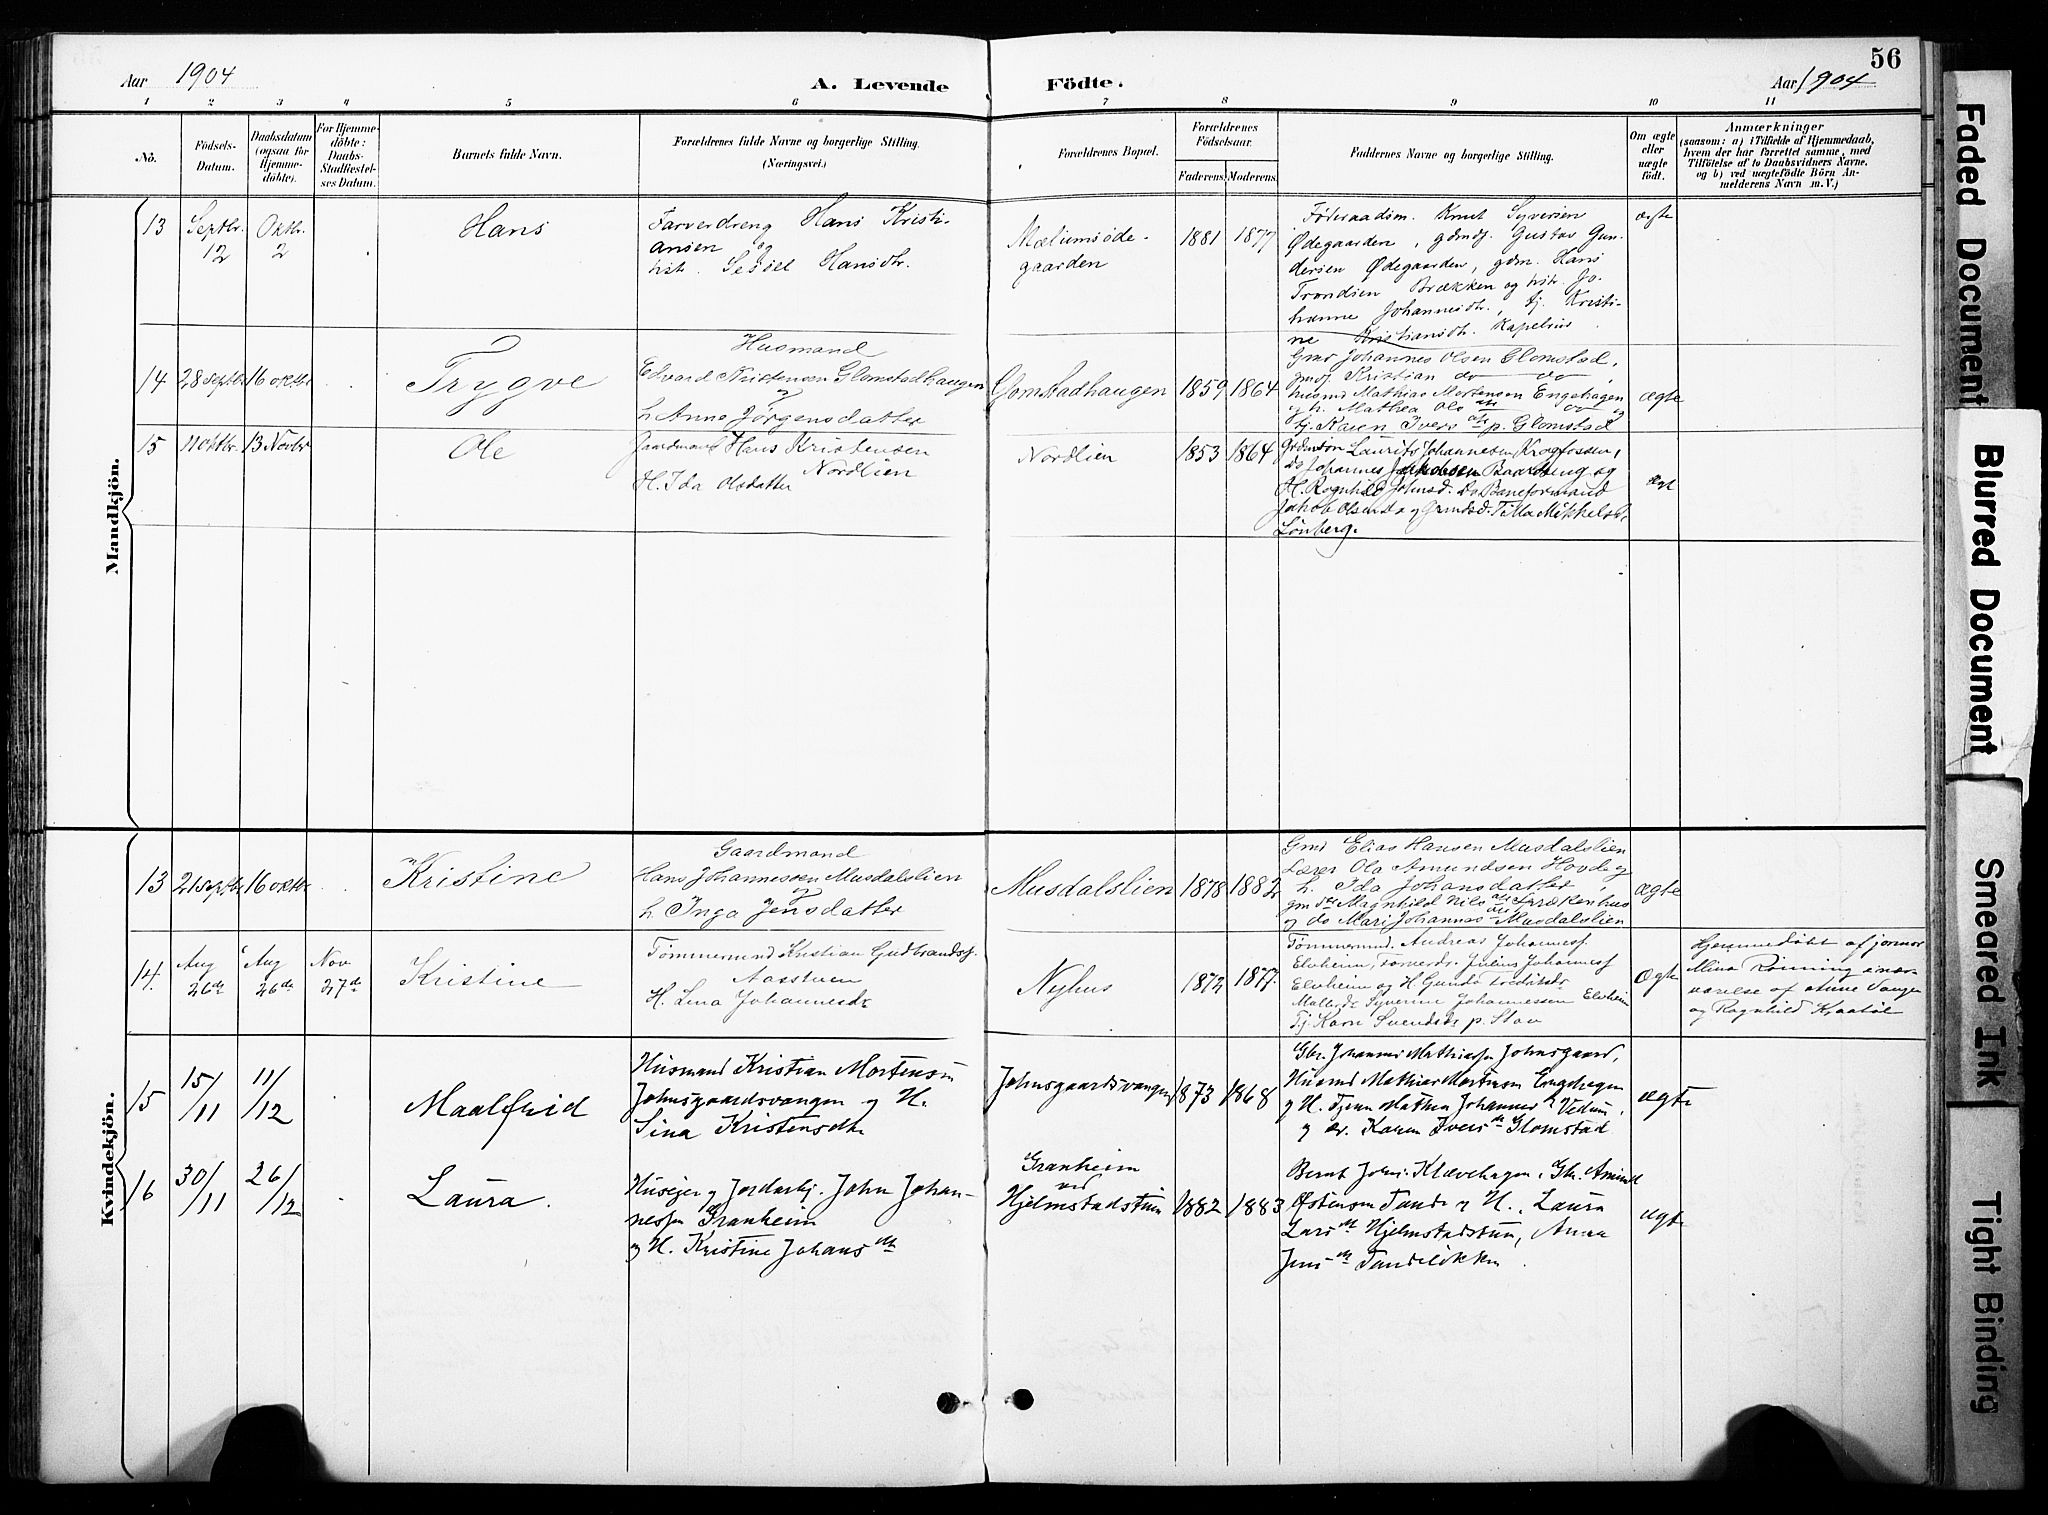 56
Aar 1904
A. Levende
Födte.
Aar 1904
1 2 3 4 5 6 7 8 9 10 11
No.
Födsels-
Datum.
Daabsdatum
(ogsaa for
Hjemme-
döbte).
For Hjemme-
döbte:
Daabs-
Stadfæstel-
ses Datum.
Barnets fulde Navn.
Forældrenes fulde Navne og borgerlige Stilling.
(Næringsvei.)
Forældrenes Bopæl.
Forældrenes
Födselsaar.
Faderens. Moderens.
Faddernes Navne og borgerlige Stilling.
Om ægte
eller
uægte
født.
Anmærkninger
(saasom: a) i Tilfælde af Hjemmedaab,
hvem der har forrettet samme, med
Tilföielse af to Daabsvidners Navne,
og b) ved uægtefödte Börn An-
melderens Navn m. V.)
Mandkjön.
13
Septbr.
12
Oktbr.
2
Hans
Farverdreng Hans Kristi-
ansen og
hst. Sessel Hansdtr.
Mæliumsøde-
gaarden
1881
1877
Födsaadsm. Knut Syversen
Ødegaarden, gdmdsj. Gustav Gun-
dersen Ødegaarden, gdm. Hans
Trondsen Brækken og hstr. Jo-
hanne Johannesdtr., tj. Kristi-
ne Kristiansdtr. Kapelhus
ægte
14
28 septbr
16 oktbr
Trygve
Husmand
Edvard Kristensen Glomstadhaugen
og
h Anne Jørgensdatter
Glomstadhaugen
1859
1864
Gmd Johannes Olsen Glomstad,
gmdsj Kristian do do,
husmd Mathias Mortensen Engehagen
og h. Mathea Ols dtr do og
tj. Karen Ivers dtr p. Glomstad
ægte
15
11 oktbr.
13 Novbr
Ole
Gaardmand Hans Kristensen
Nordlien
H. Ida Olsdatter
Nordlien
1853
1864
Grdmdsøn Laurits Johannesen Krogfossen,
do Johannes Jakobsen Baarseng og
H. Rognhild Johnsd. do Baneformand
Jakob Olsen do og Grmdsd. Tilla Mikkelsd.
Lønberg.
Ægt
Kvindekjön.
13
21 septbr
16 oktbr
Kristine
Gaardmand
Hans Johannessen Musdalslien
og
h Inga Jensdatter
Musdalslien
1878
1882
Gmd Elias Hansen Musdalslien
Lærer Ola Amundsen Hovde og
h. Ida Johansdatter,
gm ds Magnhild Nils dtr Brækenhus
og do Mari Johannes dtr Musdalslien
ægte
14.
Aug
26de
Aug
26de
Nov
27de
Kristine
Tømmermnd Kristian Gudbrandss.
Aasstuen
H. Lina Johannesdr
Nyhus
1872
1877.
Tømmermnd. Andreas Johanness.
Elvheim, Julius Johanness
Elvheim og H Gunda Fredriksdr
Syverine Johannessen Elvheim
Tj. Karn Svendsdr p. Stav
Ægte
Hjemmedøbt af jormor
Mina Rønning i nær-
værelse af Anne Vangen
og Rognhild Kraabøl
15
15/11
11/12
Maalfrid
Husmand Kristian Mortensen
Johnsgaardsvangen og H.
Sina Kristensdtr
Johnsgaardsvangen
1873
1868
Gbr. Johannes Mathiassen Johnsgaard,
Husmd Mathias Mortensen Engehagen
og H. Tjenn Mathea Johannes dr Vedum,
og do. Karen Ivers dtr Glomstad
ægte
16
30/11
26/12
Laura.
Huseier og Jordarbj. John Johan-
nessen Granheim
og H. Kristine Johans dtr
Granheim
ved
Hjelmstadstuen
1882
1883
Bernt Johs. Klævehagen, Gbr. Amund
Østensen Tande og H., Laura
Lars dtr Hjelmstadstuen, Anna
Jens dtr Tandeløkken
ægte
Faded Document
Blurred Document
Smeared Ink
Tight Binding